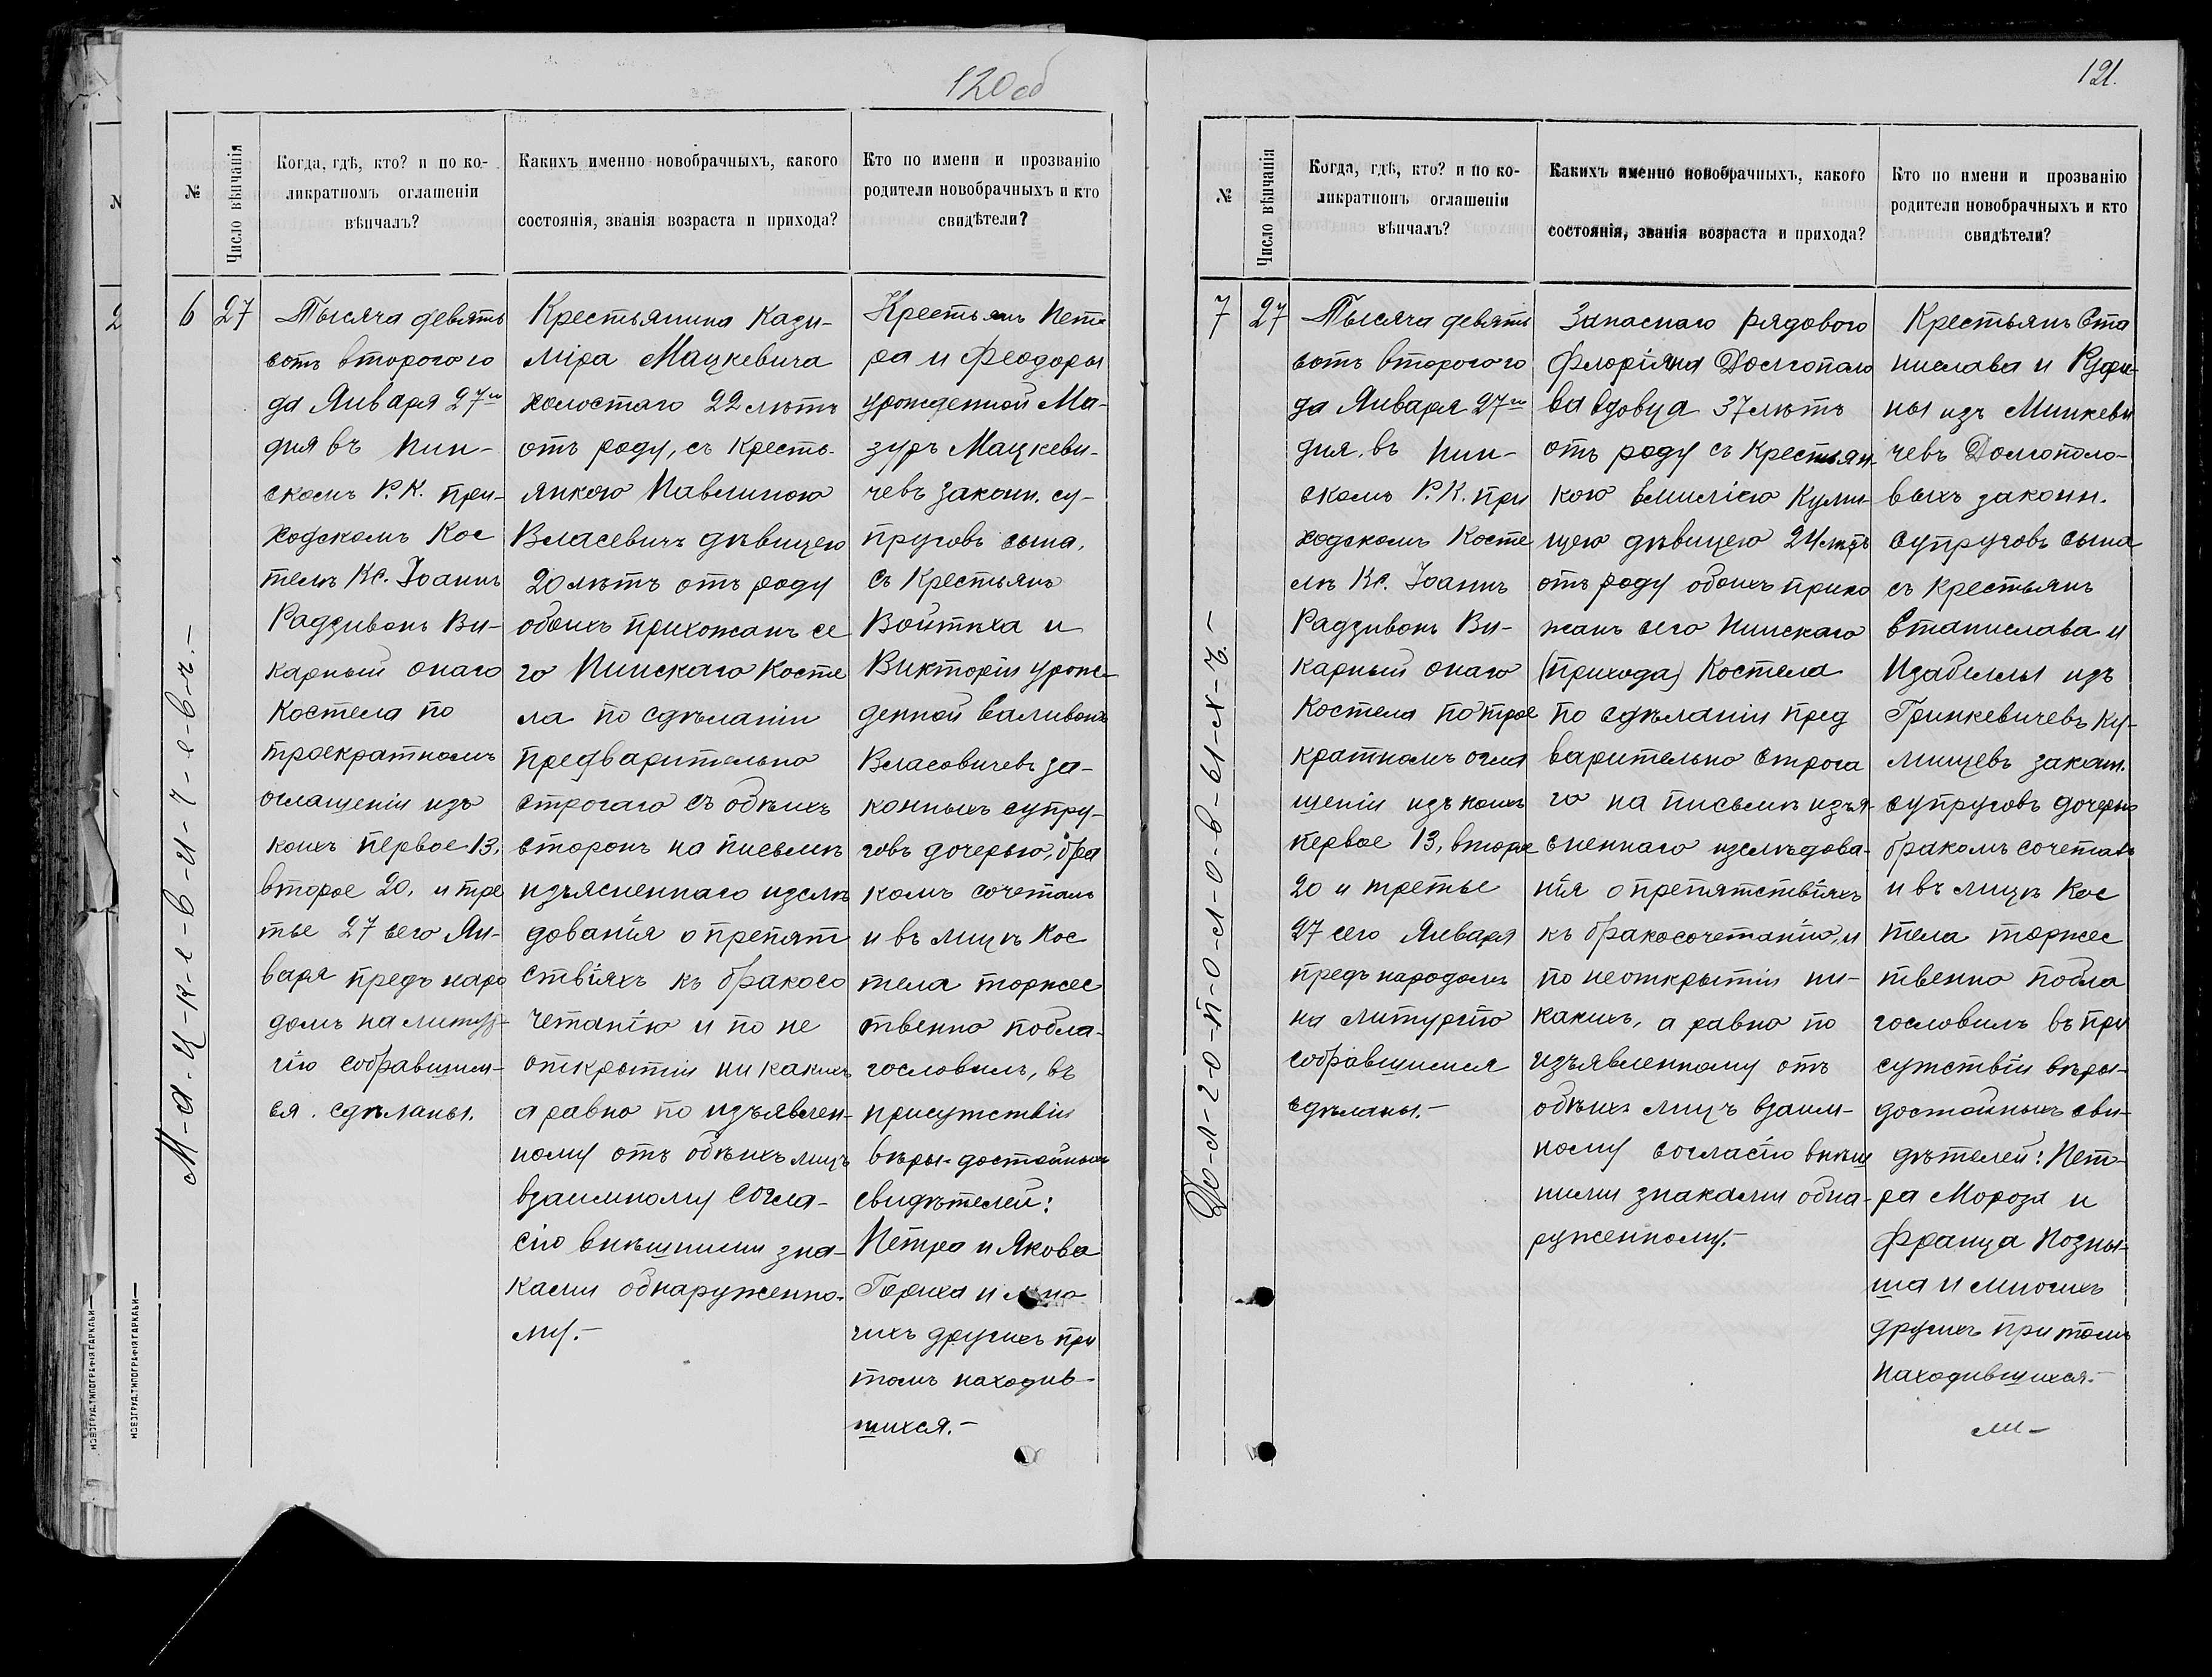 120об
№
Число вѣнчанія
Когда, гдѣ, кто? и по ко-
ликратномъ оглашеніи
вѣнчалъ?
Какихъ именно новобрачныхъ, какого
состоянія, званія возраста и прихода?
Кто по имени и прозванію
родители новобрачныхъ и кто
свидѣтели?
6
27
М-а-ц-к-е-в-и-ч-е-в-ъ.-
Тысяча девять
сотъ второго го
да Января 27го
дня въ Пин-
скомъ Р.К. при-
ходскомъ Кос
телѣ Кс. Іоаннъ
Радзивонъ Ви-
карный онаго
Костела по
троекратномъ
оглашеніи изъ
коихъ первое 13,
второе 20, и тре
тье 27 сего Ян-
варя предъ наро
домъ на литур-
гію собравшим-
ся сдѣланы.
Крестьянина Кази-
міра Мацкевича
холостаго 22 лѣтъ
отъ роду, съ Кресть-
янкою Павлиною
Власевичъ дѣвицею
20 лѣтъ отъ роду
обоихъ прихожанъ се
го Пинскаго Косте
ла по сдѣланіи
предварительно
строгаго съ обѣихъ
сторонъ на письмѣ
изъясненнаго изслѣ
дованія о препят
ствіяхъ къ бракосо
четанію и по не
открытіи ни какихъ
а равно по изъявлен-
ному отъ обѣихъ лицъ
взаимному согла-
сію внѣшними зна-
ками обнаруженно-
му.-
Крестьянъ Пет-
ра и Феодоры
урожденной Ма-
зуръ Мацкеви-
чевъ законн. су-
пруговъ сына,
съ Крестьянъ
Войтѣха и
Викторіи урож-
денной Саливонъ
Власовичевъ за-
конныхъ супру-
говъ дочерью, бра
комъ сочеталъ
и въ лицѣ Кос
тела торжес
твенно побла-
гословилъ, въ
присутствіи
вѣры-достойныхъ
свидѣтелей:
Петра и Якова
Гориха и мно
гихъ другихъ при
томъ находив-
шихся.-
НОВОГРУД. ТИПОГРАФІЯ ГАРКАВИ
НОВОГРУД. ТИПОГРАФІЯ ГАРКАВИ
121.
№
Число вѣнчанія
Когда, гдѣ, кто? и по ко-
ликратномъ оглашеніи
вѣнчалъ?
Какихъ именно новобрачныхъ, какого
состоянія, званія возраста и прихода?
Кто по имени и прозванію
родители новобрачныхъ и кто
свидѣтели?
7
27
Тысяча девять
сотъ второго го
да Января 27го
дня, въ Пин-
скомъ Р.К. при
ходскомъ Косте
лѣ Кс. Іоаннъ
Радзивонъ Ви-
карный онаго
Костела по трое
кратномъ огла
шеніи изъ коихъ
первое 13, второе
20 и третье
27 сего Января
предъ народомъ
на литургію
собравшимся
сдѣланы.-
Запаснаго рядового
Флоріяна Долгополо
ва вдовца 37 лѣтъ
отъ роду съ Крестьян-
кою Эмиліею Кули-
щею дѣвицею 24 лѣтъ
отъ роду обоихъ прихо
жанъ сего Пинскаго
(прихода) Костела
по сдѣланіи пред
варительно строга
го на письмѣ изъя-
сненнаго изслѣдова-
нія о препятствіяхъ
къ бракосочетанію, и
по неоткрытіи ни-
какихъ, а равно по
изъявленному отъ
обѣихъ лицъ взаим-
ному согласію внѣш
ними знаками обна-
руженному.-
Крестьянъ Ста
нислава и
ны изъ Минкеви
чевъ Долгополо-
выхъ законн.
супруговъ сына
съ крестьянъ
Станислава и
Изабеллы изъ
Гринкевичевъ Ку-
лищевъ законн.
супруговъ дочерью
бракомъ сочеталъ
и въ лицѣ Кос
тела торжес
твенно побла
гословилъ въ при
сутствіи вѣры-
достойныхъ сви-
дѣтелей: Пет-
ра Мороза и
Франца Позны-
ша и многихъ
другихъ при томъ
находившихся.-